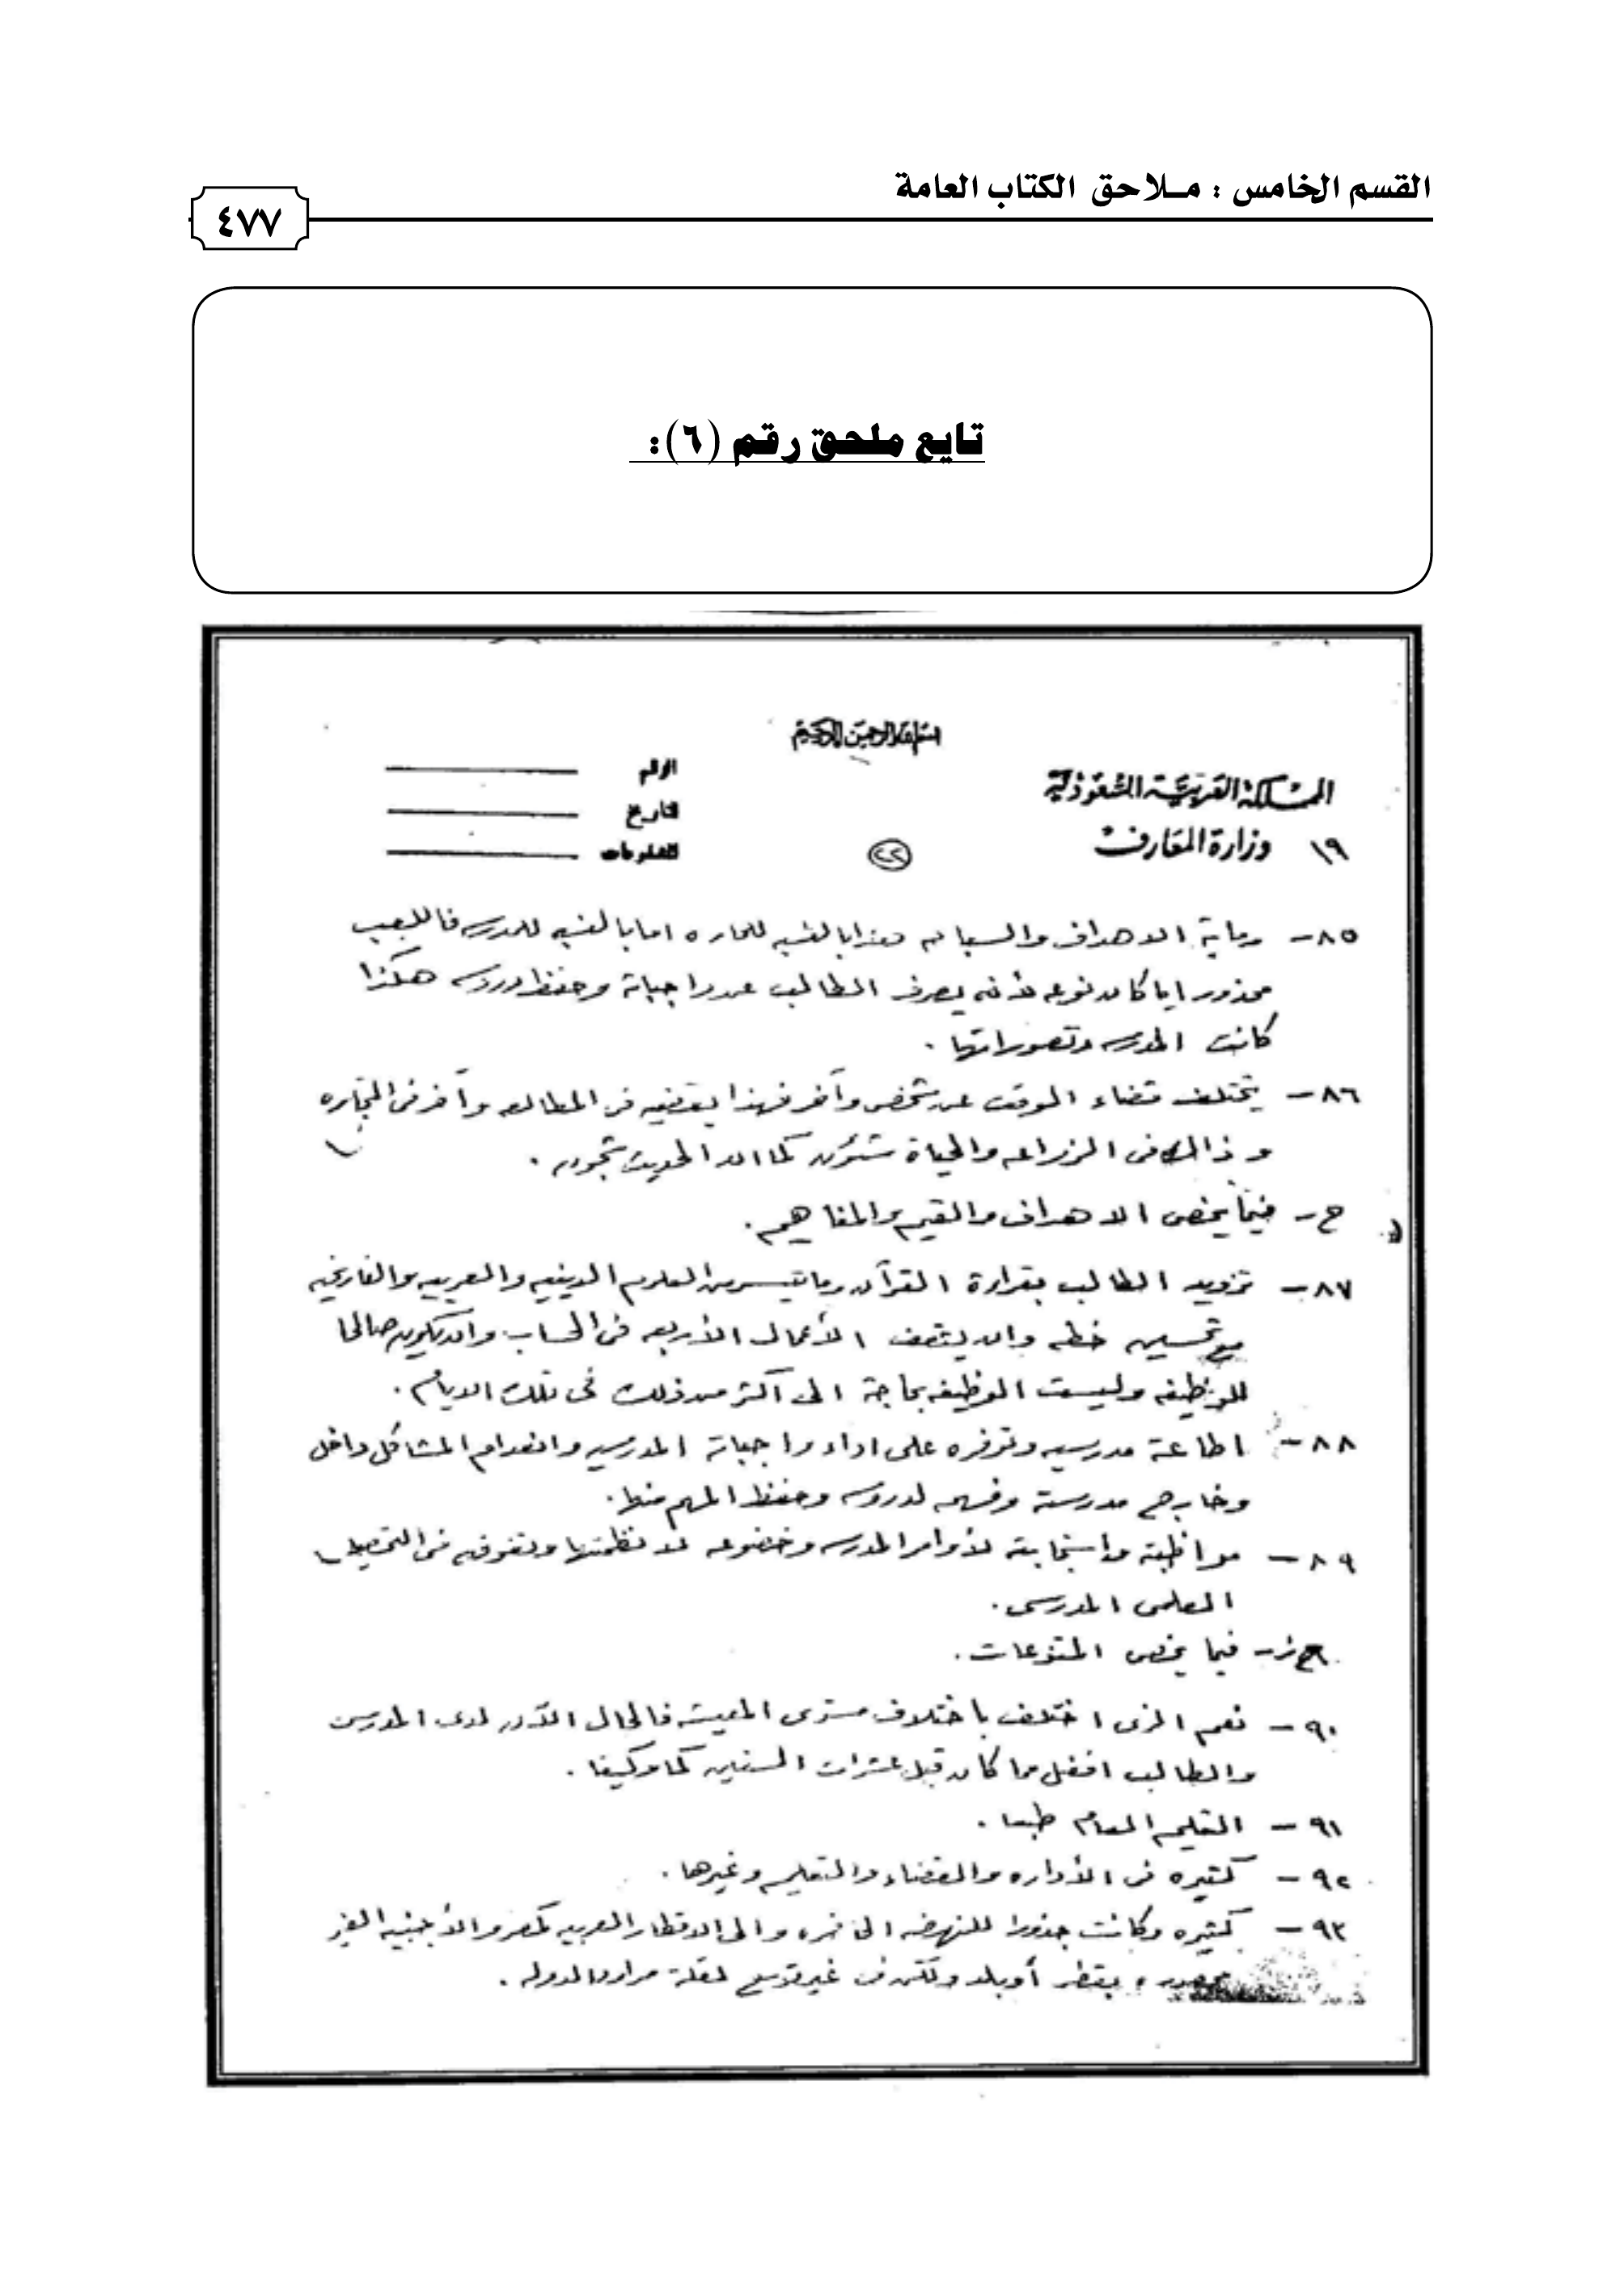 القسم الخامس : مـلاحق الكتاب العامة
٤٧٧
تابع ملحق رقم (٦):
بسم الله الرحمن الرحيم
المملكة العربية السعودية
وزارة المعارف
١٩
الرقم
التاريخ
٢٢
٨٥ – رماية الاهداف والسباحه هذا بالنسبه للحاره اما بالنسبه للمدرسه فاللعب
محذور ايا كان نوعه لأنه يصرف الطالب عن واجباته وحفظ دروسه هكذا
كانت المدرسه وتصوراتها .
٨٦ – يختلف قضاء الوقت عن شخص وآخر فهذا يقضيه في المطالعه وآخر في التجاره
وذاك في الزراعه والحياة شئون كما ان الحديث شجون .
ح – فيما يخص الاهداف والقيم والمفاهيم .
٨٧ – تزويد الطالب بقراءة القرآن وما تيسر من العلوم الدينيه والعربيه والتاريخيه
مع تحسين خطه وان يثقف الأعمال الأربعه في الحساب وان يكون صالحا
للوظيفه وليست الوظيفه بحاجة الى اكثر من ذلك في تلك الايام .
٨٨ – اطاعة مدرسيه وتوفره على اداء واجباته المدرسيه وانعدام المشاكل داخل
وخارج مدرسته وفهمه لدروسه وحفظ المهم منها .
٨٩ – مواظبته واستجابته لأوامر المدرسه وخضوعه لانظمتها وتفوقه في التحصيل
العلمي المدرسي .
فيما يخص المتنوعات .
٩٠ – نعم الزى اختلف باختلاف مستوى المعيشه فالحال الآن لدى المدرس
والطالب افضل مما كان قبل عشرات السنين كما وكيفا .
٩١ – التعليم العام طبعا .
٩٢ – كثيره في الأداره والقضاء والتعليم وغيرها .
٩٣ – كثيره وكانت جذورا للنهضه الحاضره والى الاقطار العربيه كمصر والأجنبيه الغير
محصوره بقطر أو بلد ولكن في غير توسع لقلة موارد الدوله .